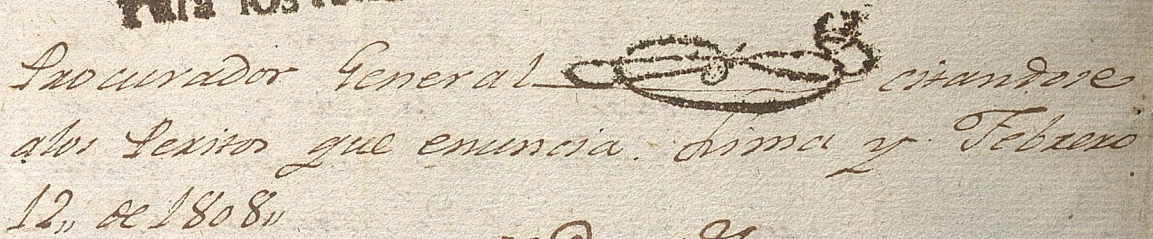 Para los
Procurador General citandose
alos Peritos que enuncia. Lima y Febrero
12,, de 1808,,